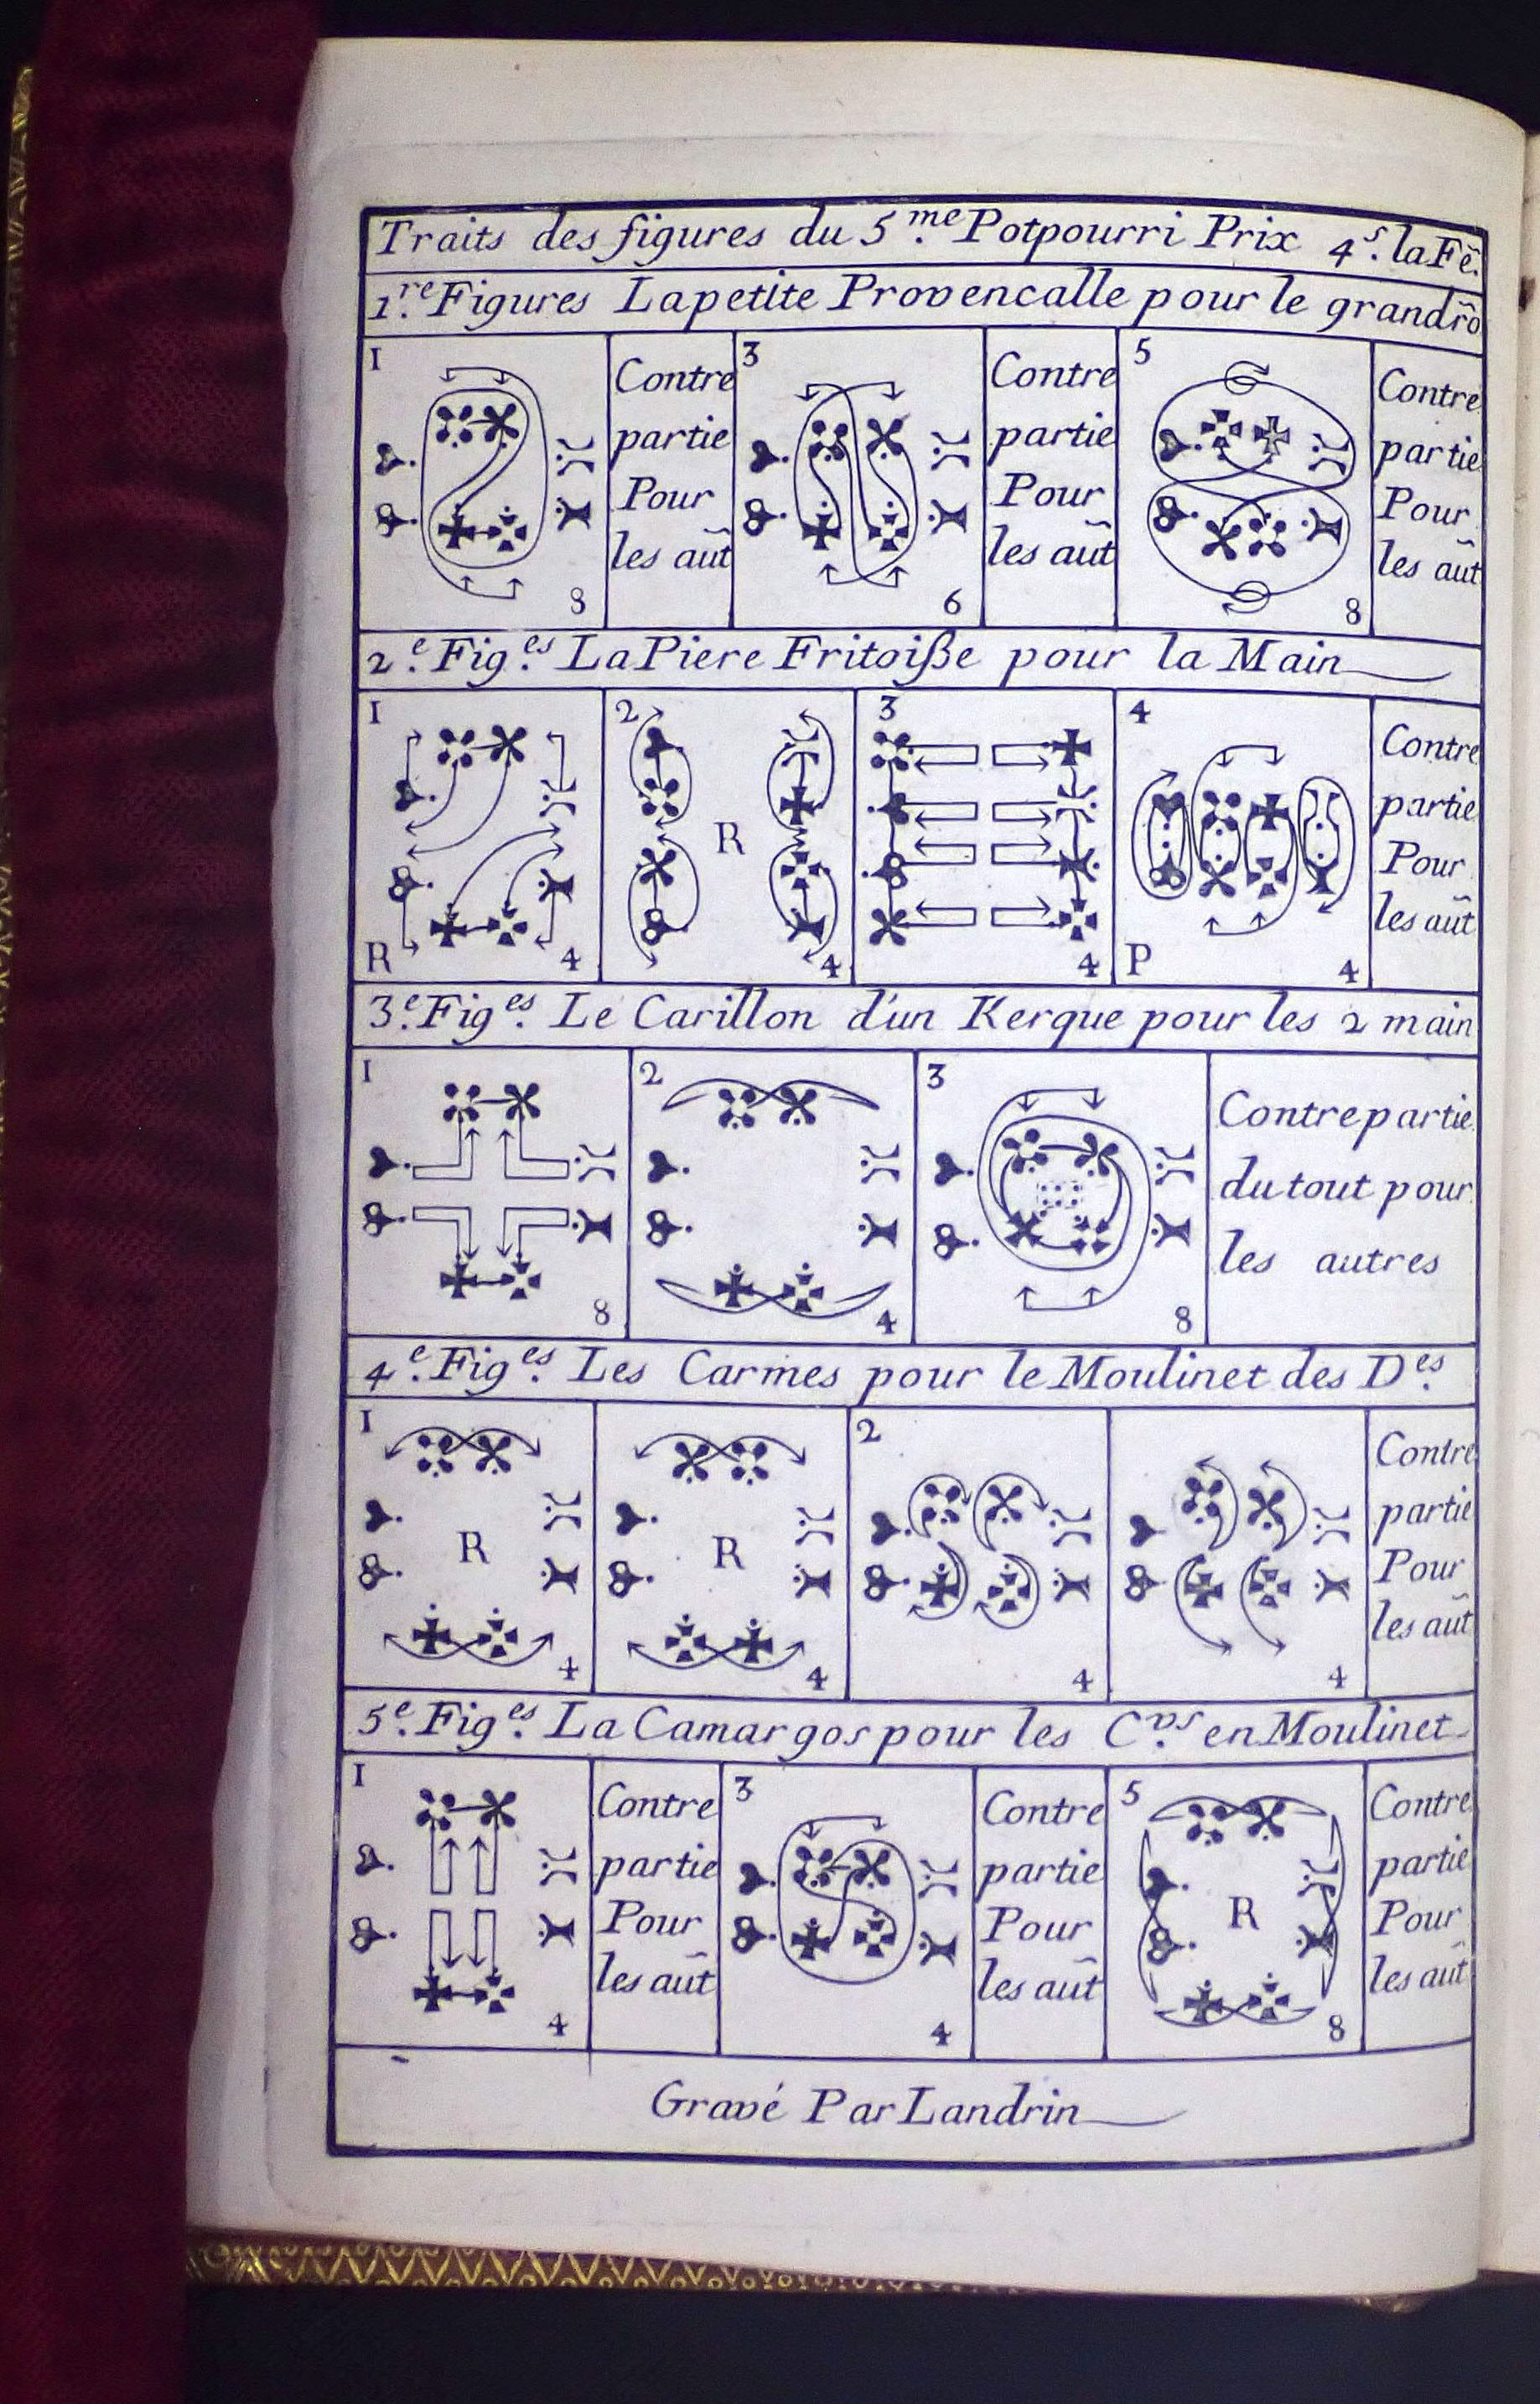 Traits des figures du 5.me Potpourri Prix 4.s la Fẽ.
1.re Figures Lapetite Provencalle pour le grandrõ
1
8
Contre
partie
Pour
les aũt
3
6
Contre
partie
Pour
les aũt
5
8
Contre
partie
Pour
les aũt
2.e Fig.es La Piere Fritoiße pour la Main
1
R
4
2
R
4
3
4
4
P
4
Contre
partie
Pour
les aũt
3.e Fig.es Le Carillon d'un Kerque pour les 2 main
1
8
2
4
3
8
Contrepartie
du tout pour
les autres
4.e Fig.es Les Carmes pour le Moulinet des D.es
1
R
4
R
4
2
4
4
Contre
partie
Pour
les aũt
5.e Fig.es La Camargos pour les C.vs en Moulinet
1
4
Contre
partie
Pour
les aũt
3
4
Contre
partie
Pour
les aũt
5
R
8
Contre
partie
Pour
les aũt
Gravé Par Landrin